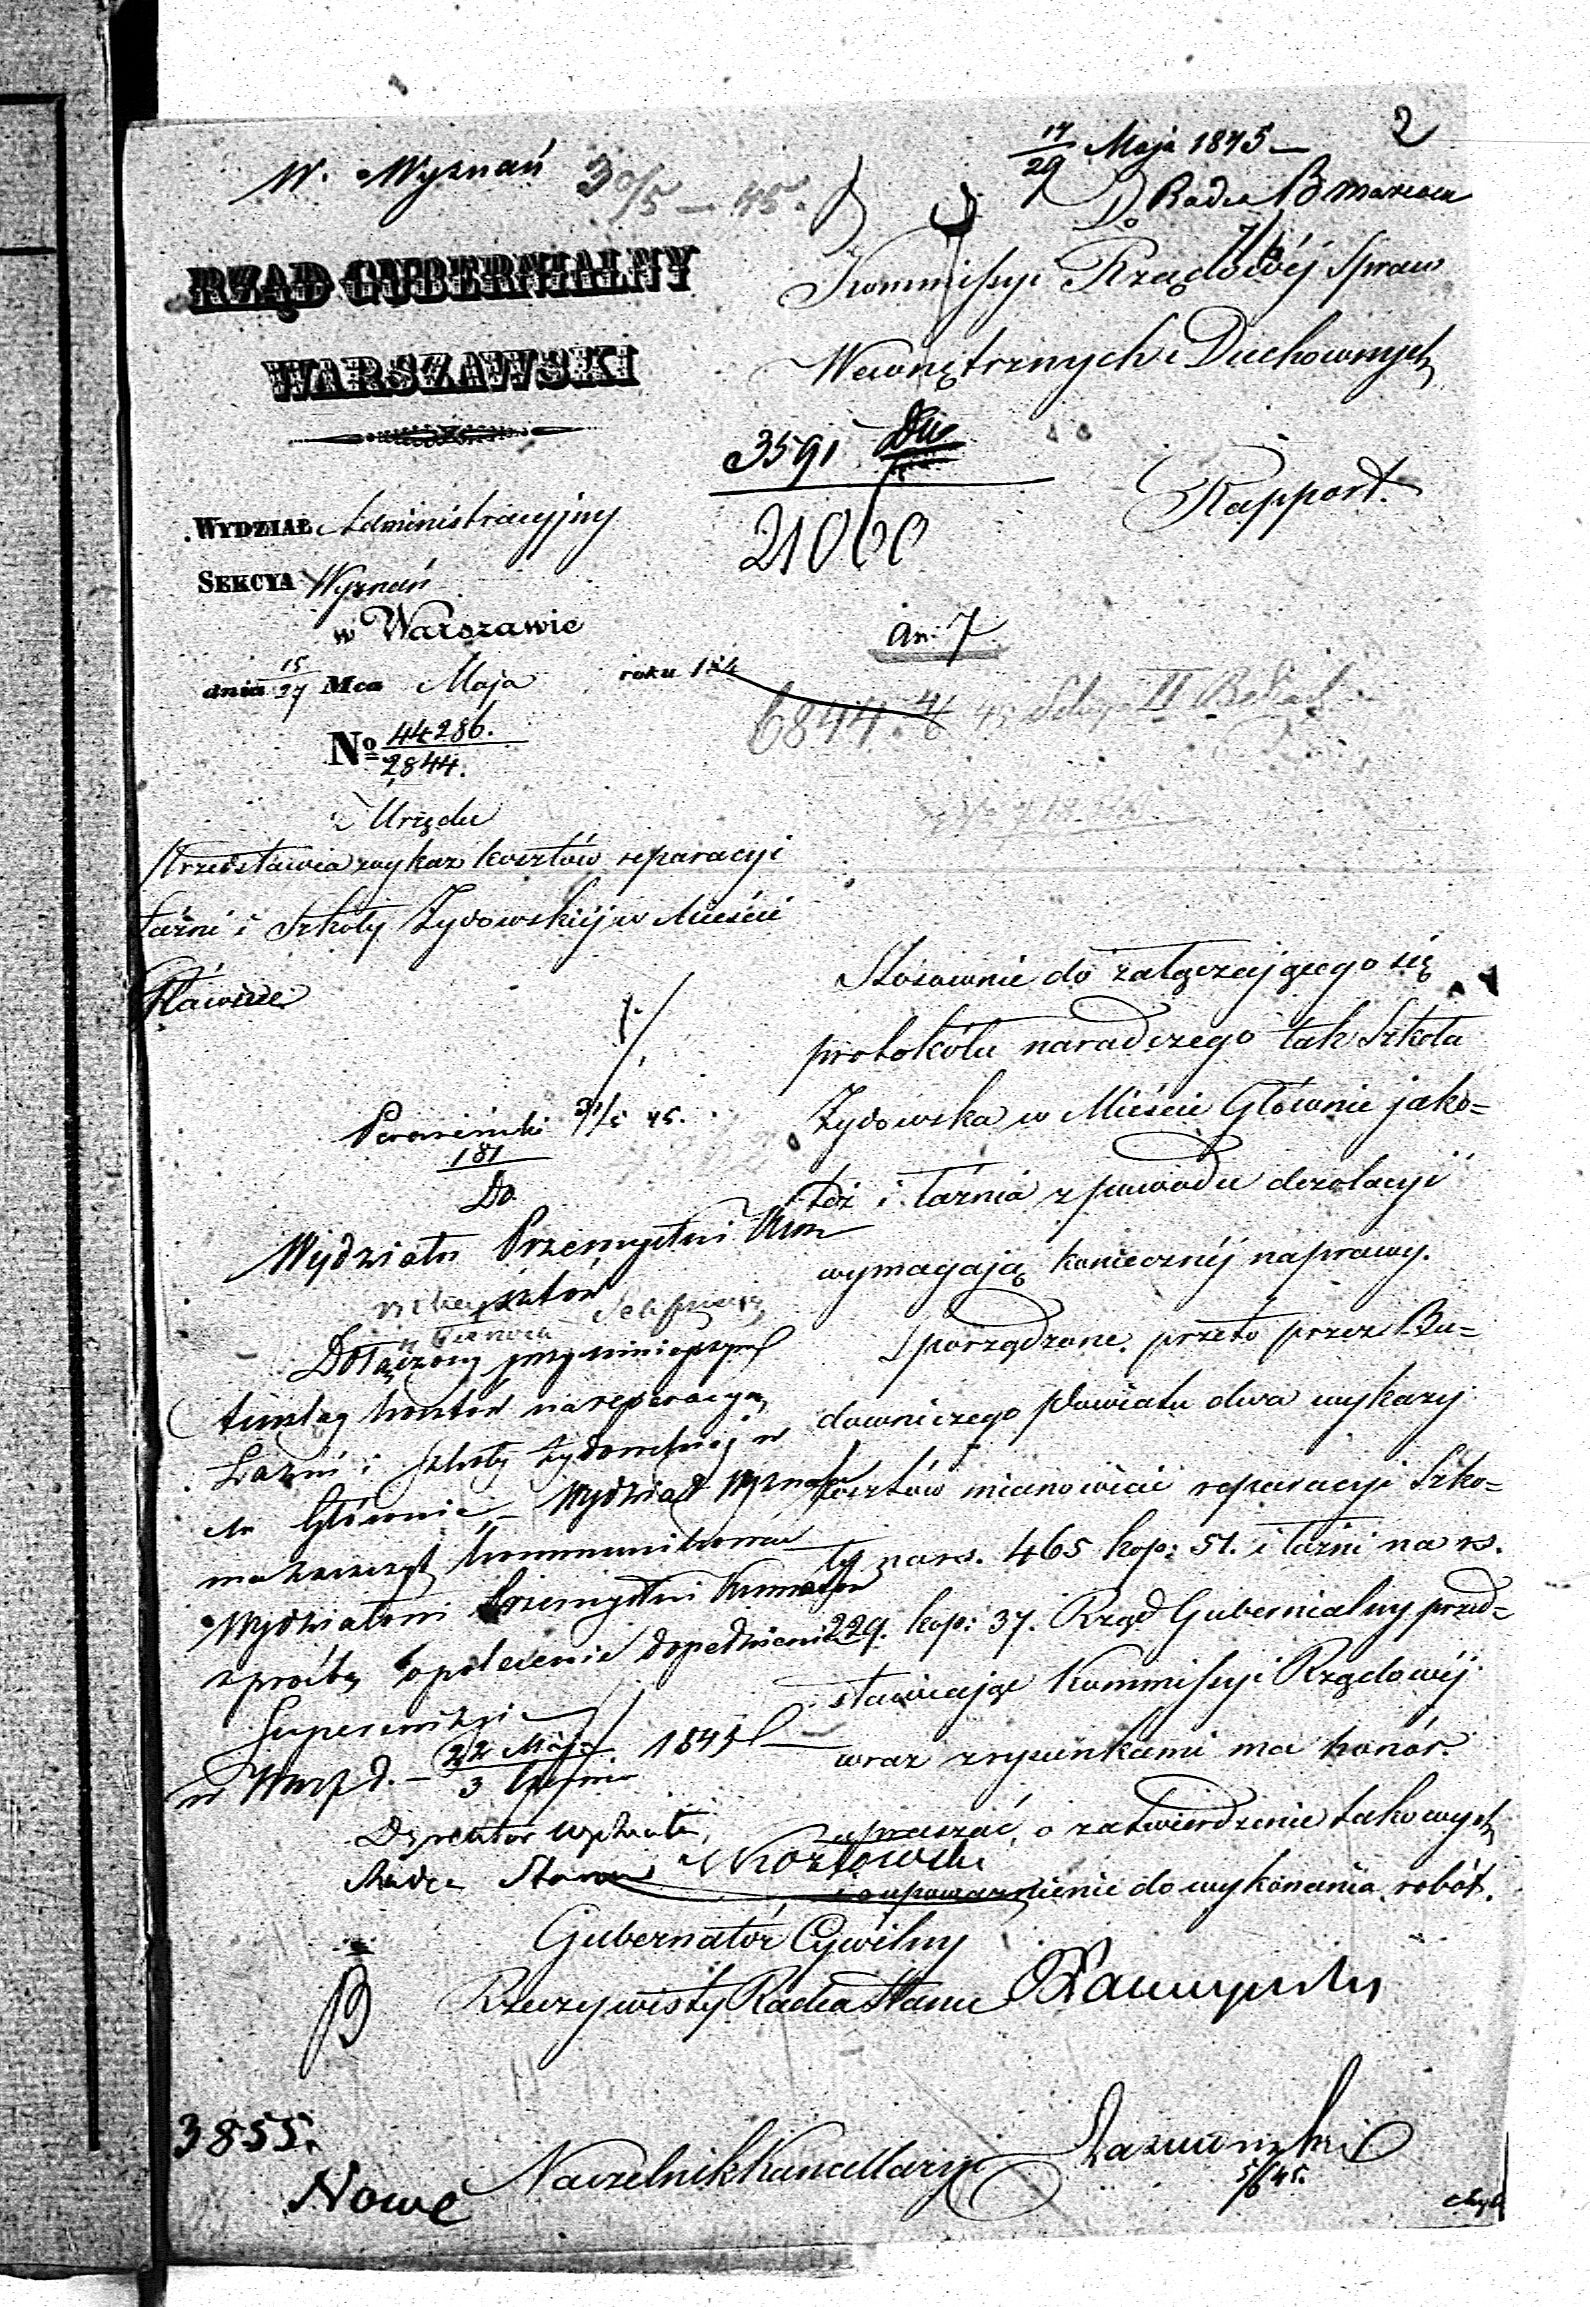 2
17/29 Maja 1845
W. Wyznań 30/5 — 45.
Do Radu
RZĄD GUBERNIALNY
WARSZAWSKI
Kommissyi Rządowéj Spraw
Wewnętrznych i Duchownych
3591
21060
Rapport.
WYDZIAŁ Administracyjny
SEKCYA Wyznań
w Warszawie
dnia 15/27 Mca Maja roku 184
An: 7
6844
No 44286.
2844.
Urzędu
Przedstawia wykaz kosztów reparacyi
Łaźni i Szkoły Żydowskiéj w Mieście
Głównie
Stósownie do załączającego się
protokółu naradczego tak Szkoła
Żydowska w Mieście Głównie jako-
też i łaźnia z powodu dezolacyi
wymagają koniecznéj naprawy.
Sporządzone przeto przez Bu-
downiczego Powiatu dwa wykazy
kosztów mianowicie reparacyi Szko-
ły na rs. 465 kop: 51. i łaźni na rs.
229. kop: 37. Rząd Gubernialny przed-
stawiając Kommissyi Rządowéj
wraz z rysunkami ma honór
zapraszać o zatwierdzenie takowych
i o upoważnienie do wykonania robót.
31/5 45.
181
Do
Wydziału Przemysłu i Kun
sztów
Dołączony przy niniejszym
Anszlag kosztów na reperacyą
Łaźni i Szkoły Żydowskiej w
M. Głównie, Wydział Wyznań
ma zaszczyt kommunikować
Wydziałowi Przemysłu i Kunsztów
z prośbą o polecenie dopełnienia
Superrewizyi
w Warsz d. — 22 Maja / 3 Czerwca 1845
Dyrektor Wydziału,
Radca Stanu Kozłowski
Gubernator Cywilny
Rzeczywisty Radca Stanu
3855.
Nowe
Naczelnik Kancellaryi
5/6 45.